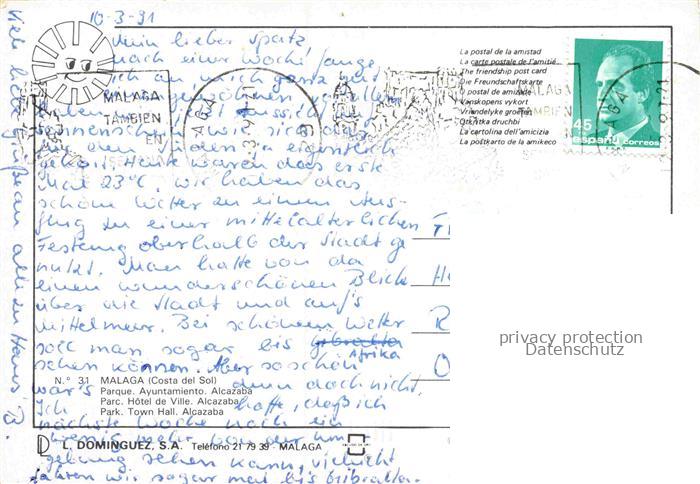 10-3-91
Mein lieber Spatz,
nach einer Woche
ich
Sonnenschein, wie sich das
den Süden eigentlich
gehört. Heute waren das erste
Mal 23°C, wir haben das
schöne Wetter zu einem Aus-
flug zu einer mittelalterlichen
Festung oberhalb der Stadt ge
nutzt. Man hatte von da
einen wunderschönen Blick
über die Stadt und auf's
Mittelmeer. Bei schönem Wetter
soll man sogar bis Gibralta
Afrika
sehen können. Aber so schön
war's dann doch nicht,
Ich hoffe, daß ich
nächste Woche noch ein
wenig mehr von der Um
gebung sehen kann, vielleicht
fahren wir sogar mal bis Gibraltar.
Viele liebe Grüße an alle zu Hause, B.
MALAGA
TAMBIEN
EN
La postal de la amistad
La carte postale de l'amitié
The friendship post card
Die Freundschaftskarte
O postal de amizade
Vanskopens vykort
Vriendelyke groeten
Otkritka druchbi
La cartolina dell'amicizia
La postkarto de la amikeco
MALAGA
TAMBIEN
45
españa correos
privacy protection
Datenschutz
N.° 31 MALAGA (Costa del Sol)
Parque. Ayuntamiento. Alcazaba
Parc. Hôtel de Ville. Alcazaba
Park. Town Hall. Alcazaba
L. DOMINGUEZ, S.A. Teléfono 21 79 39 - MALAGA